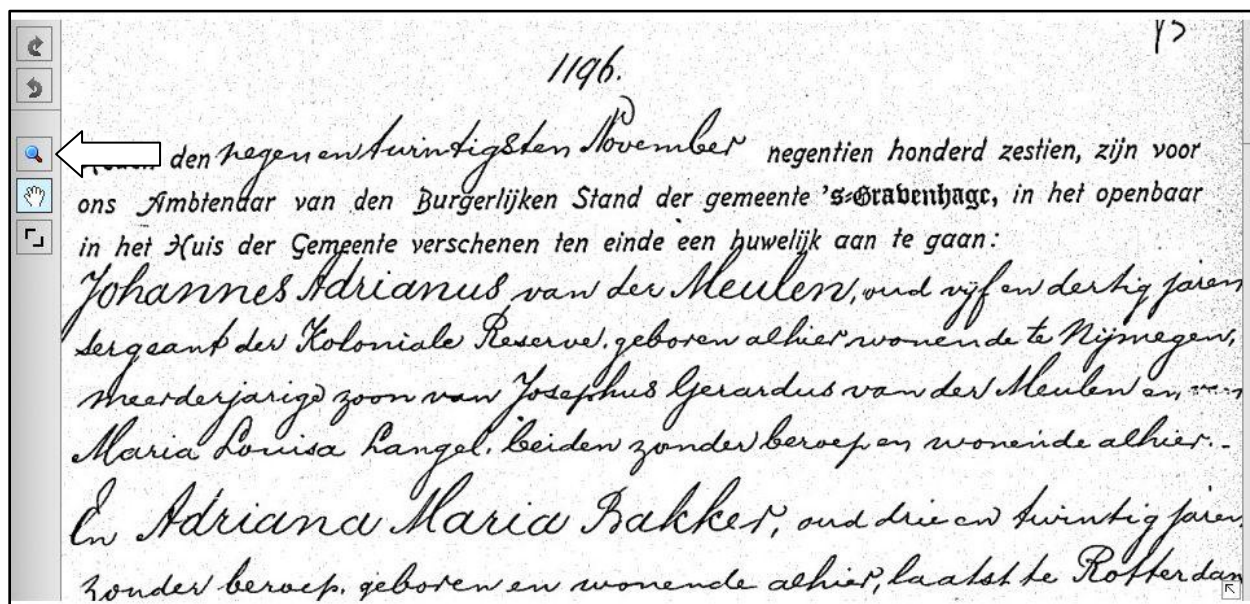 1196.
den negen en twintigsten November negentien honderd zestien, zijn voor
ons Ambtenaar van den Burgerlijken Stand der gemeente 's-Gravenhage, in het openbaar
in het Huis der Gemeente verschenen ten einde een huwelijk aan te gaan:
Johannes Adrianus van der Meulen, oud vijf en dertig jaren
sergeant der Koloniale Reserve, geboren alhier wonende te Nijmegen,
meerderjarige zoon van Josephus Gerardus van der Meulen en van
Maria Louisa Langel, beiden zonder beroep en wonende alhier.
En Adriana Maria Bakker, oud drie en twintig jaren
zonder beroep, geboren en wonende alhier, laatst te Rotterdam